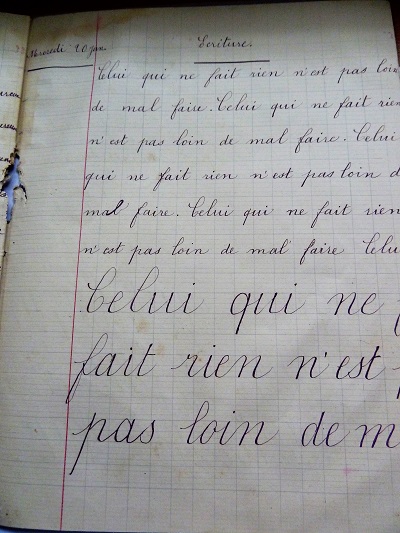 Mercredi 10 juin Ecriture.
Celui qui ne fait rien n'est pas loin
de mal faire. Celui qui ne fait rien
n'est pas loin de mal faire. Celui
qui ne fait rien n'est pas loin d
mal faire. Celui qui ne fait rien
n'est pas loin de mal faire Celu
Celui qui ne f
fait rien n'est p
pas loin de m